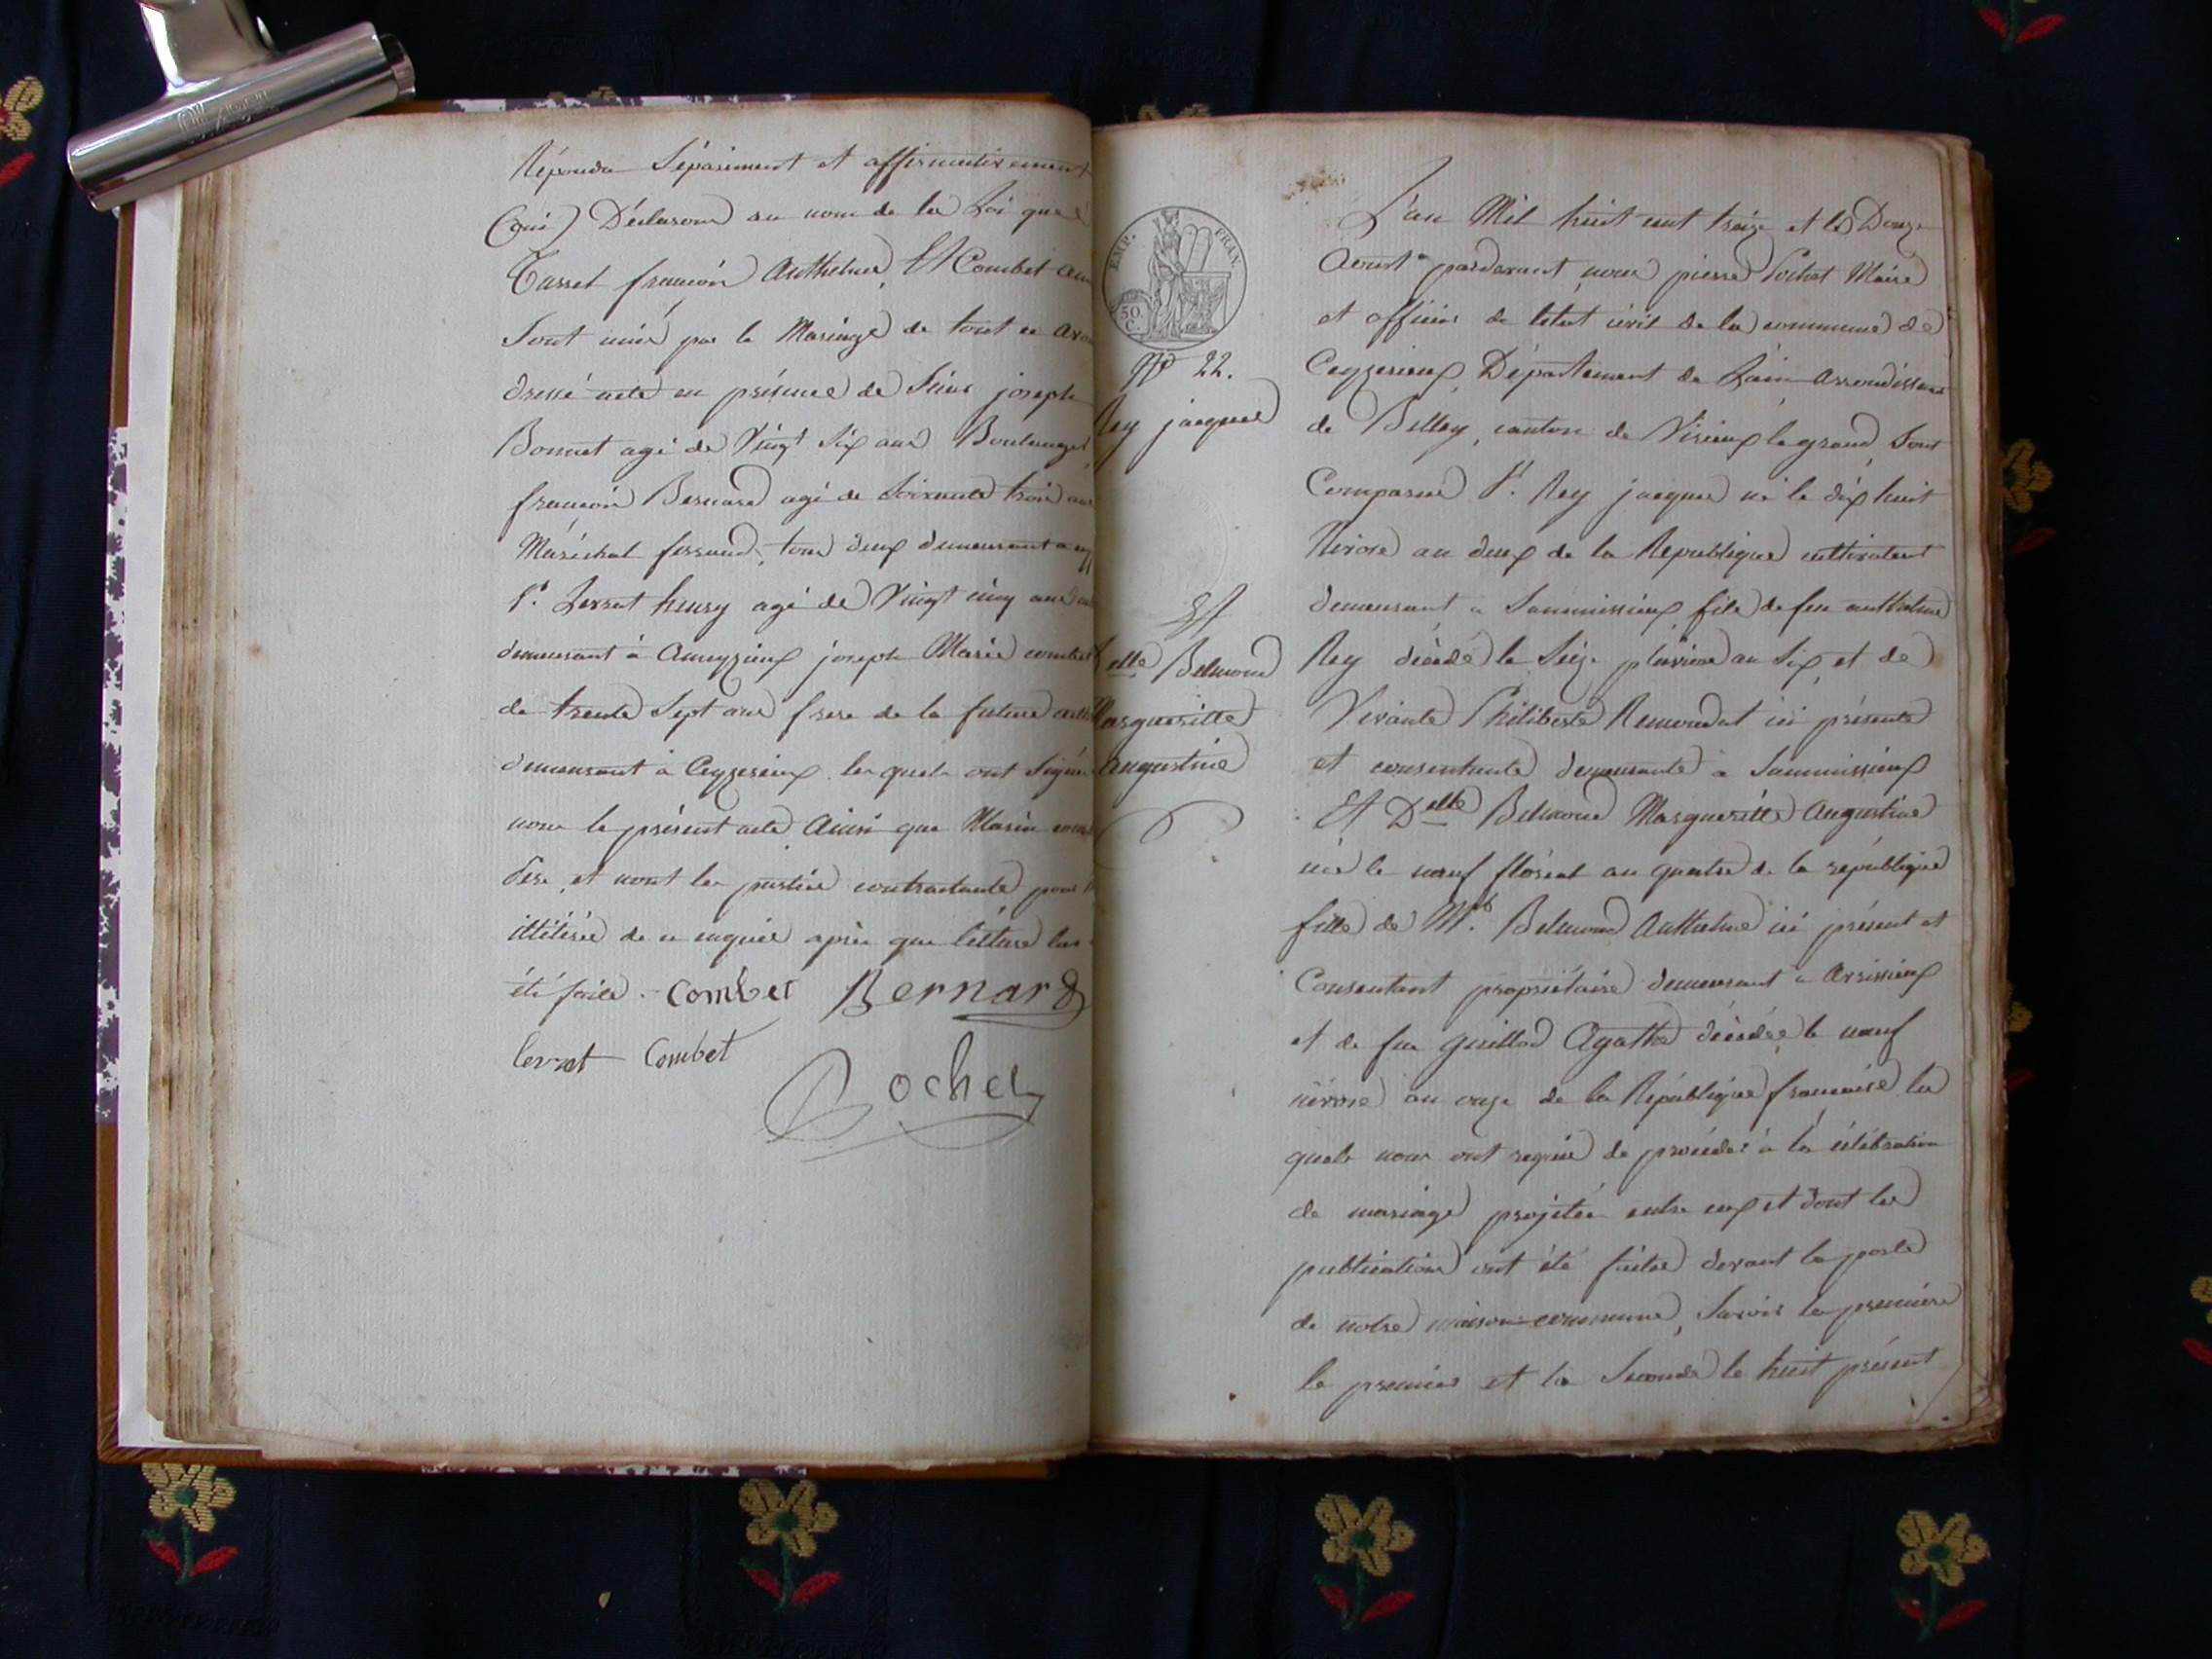 répondu séparément et affirmativement
(oui) Déclarons au nom de la Loi que
Tasset françois Anthelme, Et Combet
Sont unis par le Mariage de tout ce
dressé acte en présence de Sieur joseph
Bonnet agé de Vingt Six ans Boulanger
françois Bernard agé de Soixante trois ans
Maréchal ferrand, tous deux demeurant a
Sr. Lerrat henry agé de Vingt cinq ans
demeurant à Ameyzieux joseph Marie combet
de trente Sept ans frere de la future
demeurant à Ceyzerieux lesquels ont Signé
nous le présent acte Ainsi que Marin
père, et nont les parties contractantes pour
illitérés de ce enquis après que lécture
été faite. Combet Bernard
Lerrat Combet
Pochet
EMP. FRAN.
50 C.
No 22.
Rey jacques
Et
Delle Belmond
Margueritte
augustine
L'an Mil huit cent treize et le Douze
Aoust pardevant nous pierre Pochet Maire
et officier de létat civil de la commune de
Ceyzerieux, Département de Lain arrondissem
de Belley, canton de Virieux le grand, Sont
Comparus Sr. Rey jacques né le dix huit
Nivose an deux de la Republique cultivateur
demeurant a Sammissieux fils de feu anthelme
Rey décédé le Seize pluviose an Six et de
Vivante Philiberte Remondat ici présente
et consentente demeurante a Sammissieux
Et Delle Belmond Margueritte Augustine
née le neuf floréal an quatre de la république
fille de Mr. Belmond Anthelme ici présent et
Consentant propriétaire demeurant a Avrissieux
et de feu guillod Agathe décédée le neuf
nivose an onze de la République françaïse les
quels nous ont requis de procéder à la célébration
de mariage projetée entre eux et dont les
publications ont été faites devant la porte
de notre maison commune, Savoir la premiere
le premier et la Seconde le huit présent